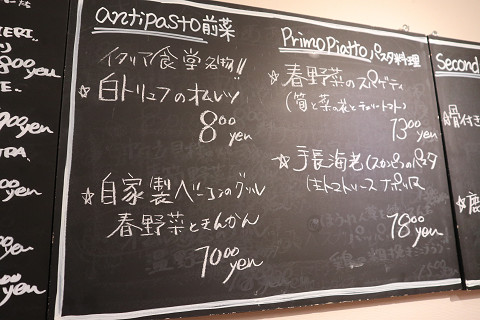 antipasto 前菜
イタリア食堂名物!!
☆白トリュフのオムレツ
800yen
☆自家製ベーコンのグリル
春野菜ときんかん
1000yen
Primo Piatto パスタ料理
☆春野菜のスパゲティ
(筍と菜の花とチェリートマト)
1300yen
☆手長海老(スカンピ)のパスタ
トマトソース ナポリ
1800yen
Second
骨付き
☆鹿
yen
yen
yen
yen